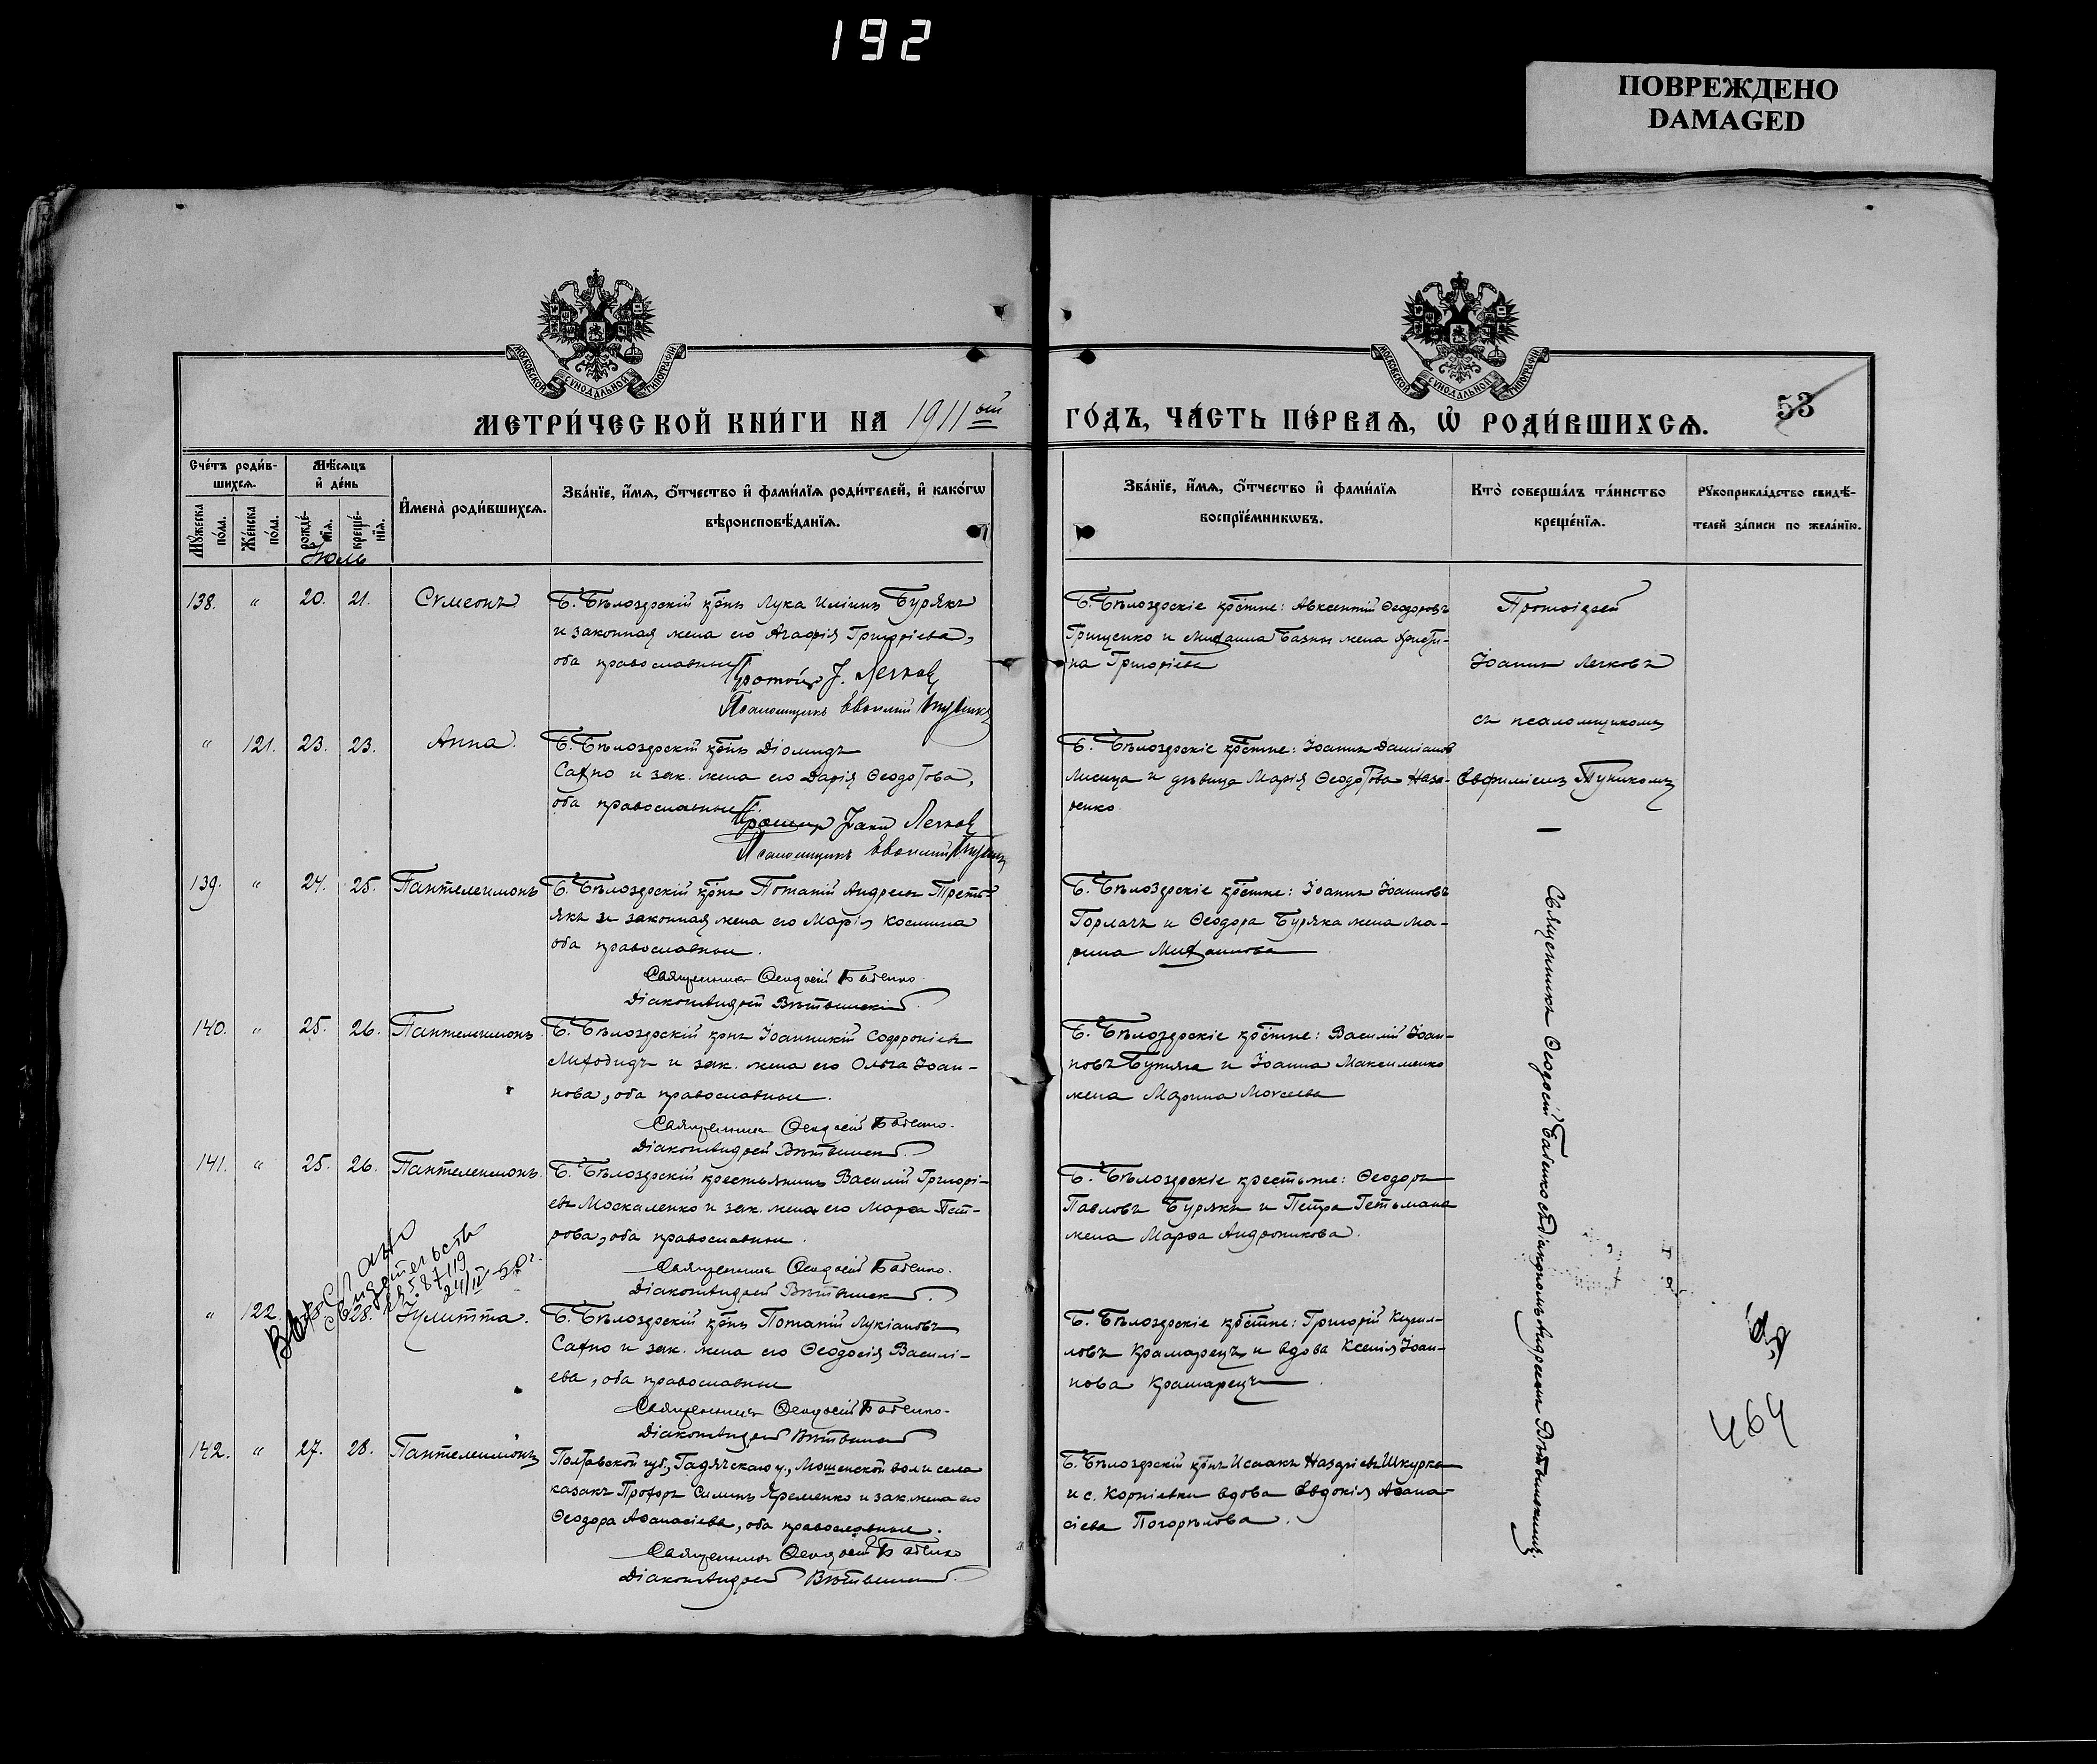 192
ПОВРЕЖДЕНО
DAMAGED
МОСКОВСКОЙ СѴНОДАЛЬНОЙ ТИПОГРАФІИ
МОСКОВСКОЙ СѴНОДАЛЬНОЙ ТИПОГРАФІИ
МЕТРИ́ЧЕСКОЙ КНИ́ГИ НА 1911ый
ГО́ДЪ, ЧА́СТЬ ПЕ́РВАѦ, Ѡ҆ РОДИ́ВШИХСѦ.
53
Сче́тъ роди́в-
шихсѧ.
Мꙋ́жеска по́ла.
Же́нска по́ла.
Мѣ́сѧцъ
и҆ де́нь
рожде́-
нїѧ.
креще́-
нїѧ.
Іюль
И҆мена̀ роди́вшихсѧ.
Зва́нїе, и҆́мѧ, ѻ҆́тчество и҆ фами́лїѧ роди́телей, и҆ како́гѡ
вѣроисповѣ́данїѧ.
Зва́нїе, и҆́мѧ, ѻ҆́тчество и҆ фами́лїѧ
воспрїе́мникѡвъ.
Кто̀ соверша́лъ та́инство
креще́нїѧ.
Рꙋкоприкла́дство свидѣ́-
телей за́писи по жела́нїю.
138. " 20. 21. Сѵмеонъ.
Б. Бѣлозерскій крнъ Лука Иліинъ Бурякъ
и законная жена его Агафія Григоріева,
оба православные
Протоіер. І. Легковъ
Псаломщикъ Евфимій
Б. Бѣлозерскіе крестне: Авксентій Ѳеодоровъ
Грищенко и Михаила Базны жена Христи-
на Григоріева
Протоіерей
Іоаннъ Легковъ
съ псаломщикомъ
Евфиміемъ
" 121. 23. 23. Анна.
Б. Бѣлозерскій крнъ Діомидъ
Сахно и зак. жена его Дарія Ѳеодотова,
оба православные.
Протоіер Іоаннъ Легковъ
Псаломщикъ Евфимій
Б. Бѣлозерскіе крестне: Іоаннъ Даміановъ
Лисица и дѣвица Марія Ѳеодотова Наза-
ренко
139. " 24. 25. Пантелеимонъ
Б. Бѣлозерскій крнъ Потапій Андреевъ Треть-
якъ и законная жена его Марія Космина
оба православные.
Священникъ Ѳеодосій Бабенко
Діаконъ Андрей
Б. Бѣлозерскіе крестне: Іоаннъ Іоанновъ
Горлачъ и Ѳеодора Буряка жена Ма-
рина Михаилова
140. " 25. 26. Пантелеимонъ.
Б. Бѣлозерскій крнъ Іоанникій Софроніевъ
и зак. жена его Ольга Іоан-
нова, оба православные.
Священникъ Ѳеодосій Бабенко.
Діаконъ Андрей
Б. Бѣлозерскіе крестне: Василій Іоан-
новъ и Іоанна Максименко
жена Марина Моѵсеева
141. " 25. 26. Пантелеимонъ.
Б. Бѣлозерскій крестьянинъ Василій Григорі-
евъ Москаленко и зак. жена его Марѳа Пет-
рова, оба православные.
Священникъ Ѳеодосій Бабенко.
Діаконъ Андрей
Б. Бѣлозерскіе крестьяне: Ѳеодоръ
Павловъ Бурякъ и Петра Гетьмана
жена Марѳа Андроникова.
Выслано
свидетельство
24/IV-50 г.
" 122. 28. Іулитта.
Б. Бѣлозерскій крнъ Потапій Лукіановъ
Сахно и зак. жена его Ѳеодосія Василі-
ева, оба православные
Священникъ Ѳеодосій Бабенко.
Діаконъ Андрей
Б. Бѣлозерскіе крестне: Григорій Кирил-
ловъ Крамарецъ и вдова Ксенія Іоан-
нова Крамарецъ.
464
142. " 27. 28. Пантелеимонъ
Полтавской губ., Гадячскаго у., вол. и села
казакъ Прохоръ Силинъ Яременко и зак. жена его
Ѳеодора Аѳанасіева, оба православные.
Священникъ Ѳеодосій Бабенко
Діаконъ Андрей
Б. Бѣлозерскій крнъ Исаакъ Назаріевъ Шкурка
и с. Корніевки вдова Евдокія Аѳана-
сіева Погорѣлова.
Священникъ Ѳеодосій Бабенко съ діакономъ Андреемъ